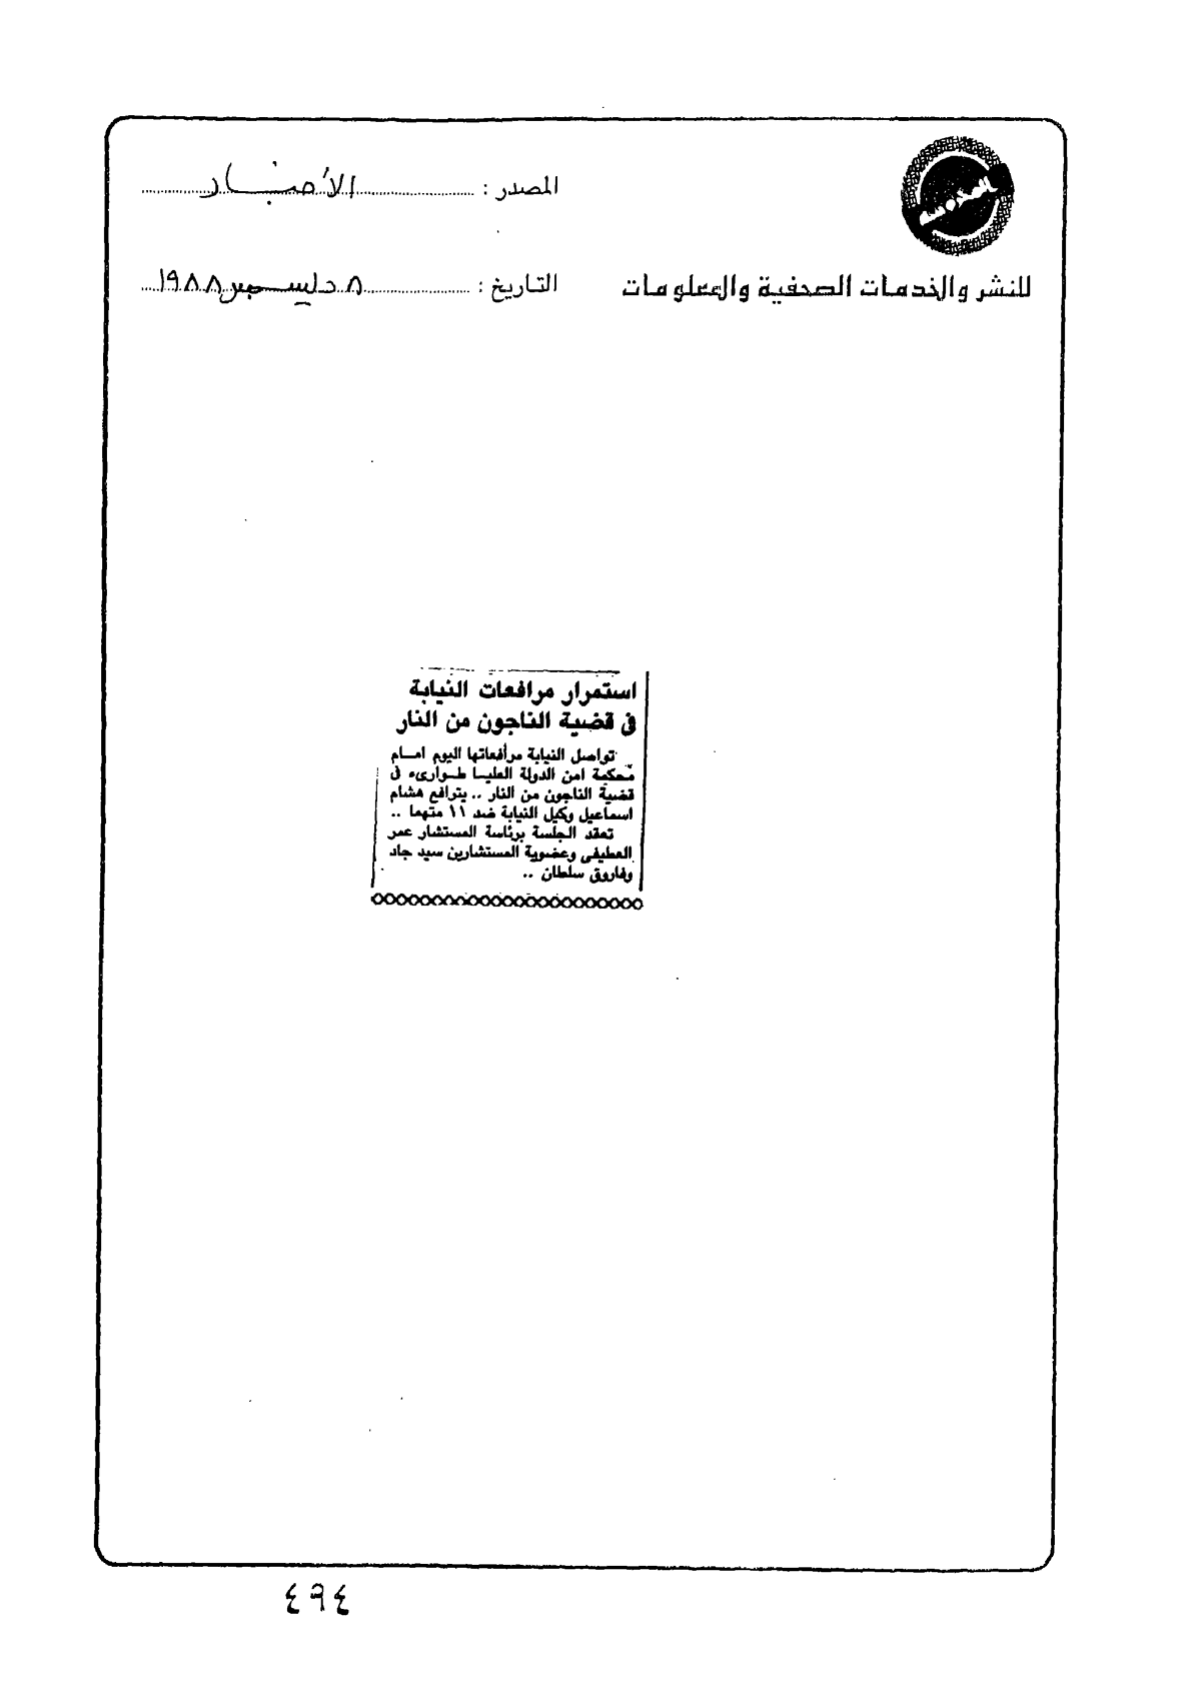 المصدر : الأخبار
للنشر والخدمات الصحفية والمعلومات
التاريخ : ٨ ديسمبر ١٩٨٨
استمرار مرافعات النيابة
فى قضية الناجون من النار
تواصل النيابة مرافعاتها اليوم امام
محكمة امن الدولة العليا طوارىء فى
قضية الناجون من النار .. يترافع هشام
اسماعيل وكيل النيابة ضد ١١ متهما ..
تعقد الجلسة برئاسة المستشار عمر
العطيفى وعضوية المستشارين سيد جاد
وفاروق سلطان ..
٤٩٤